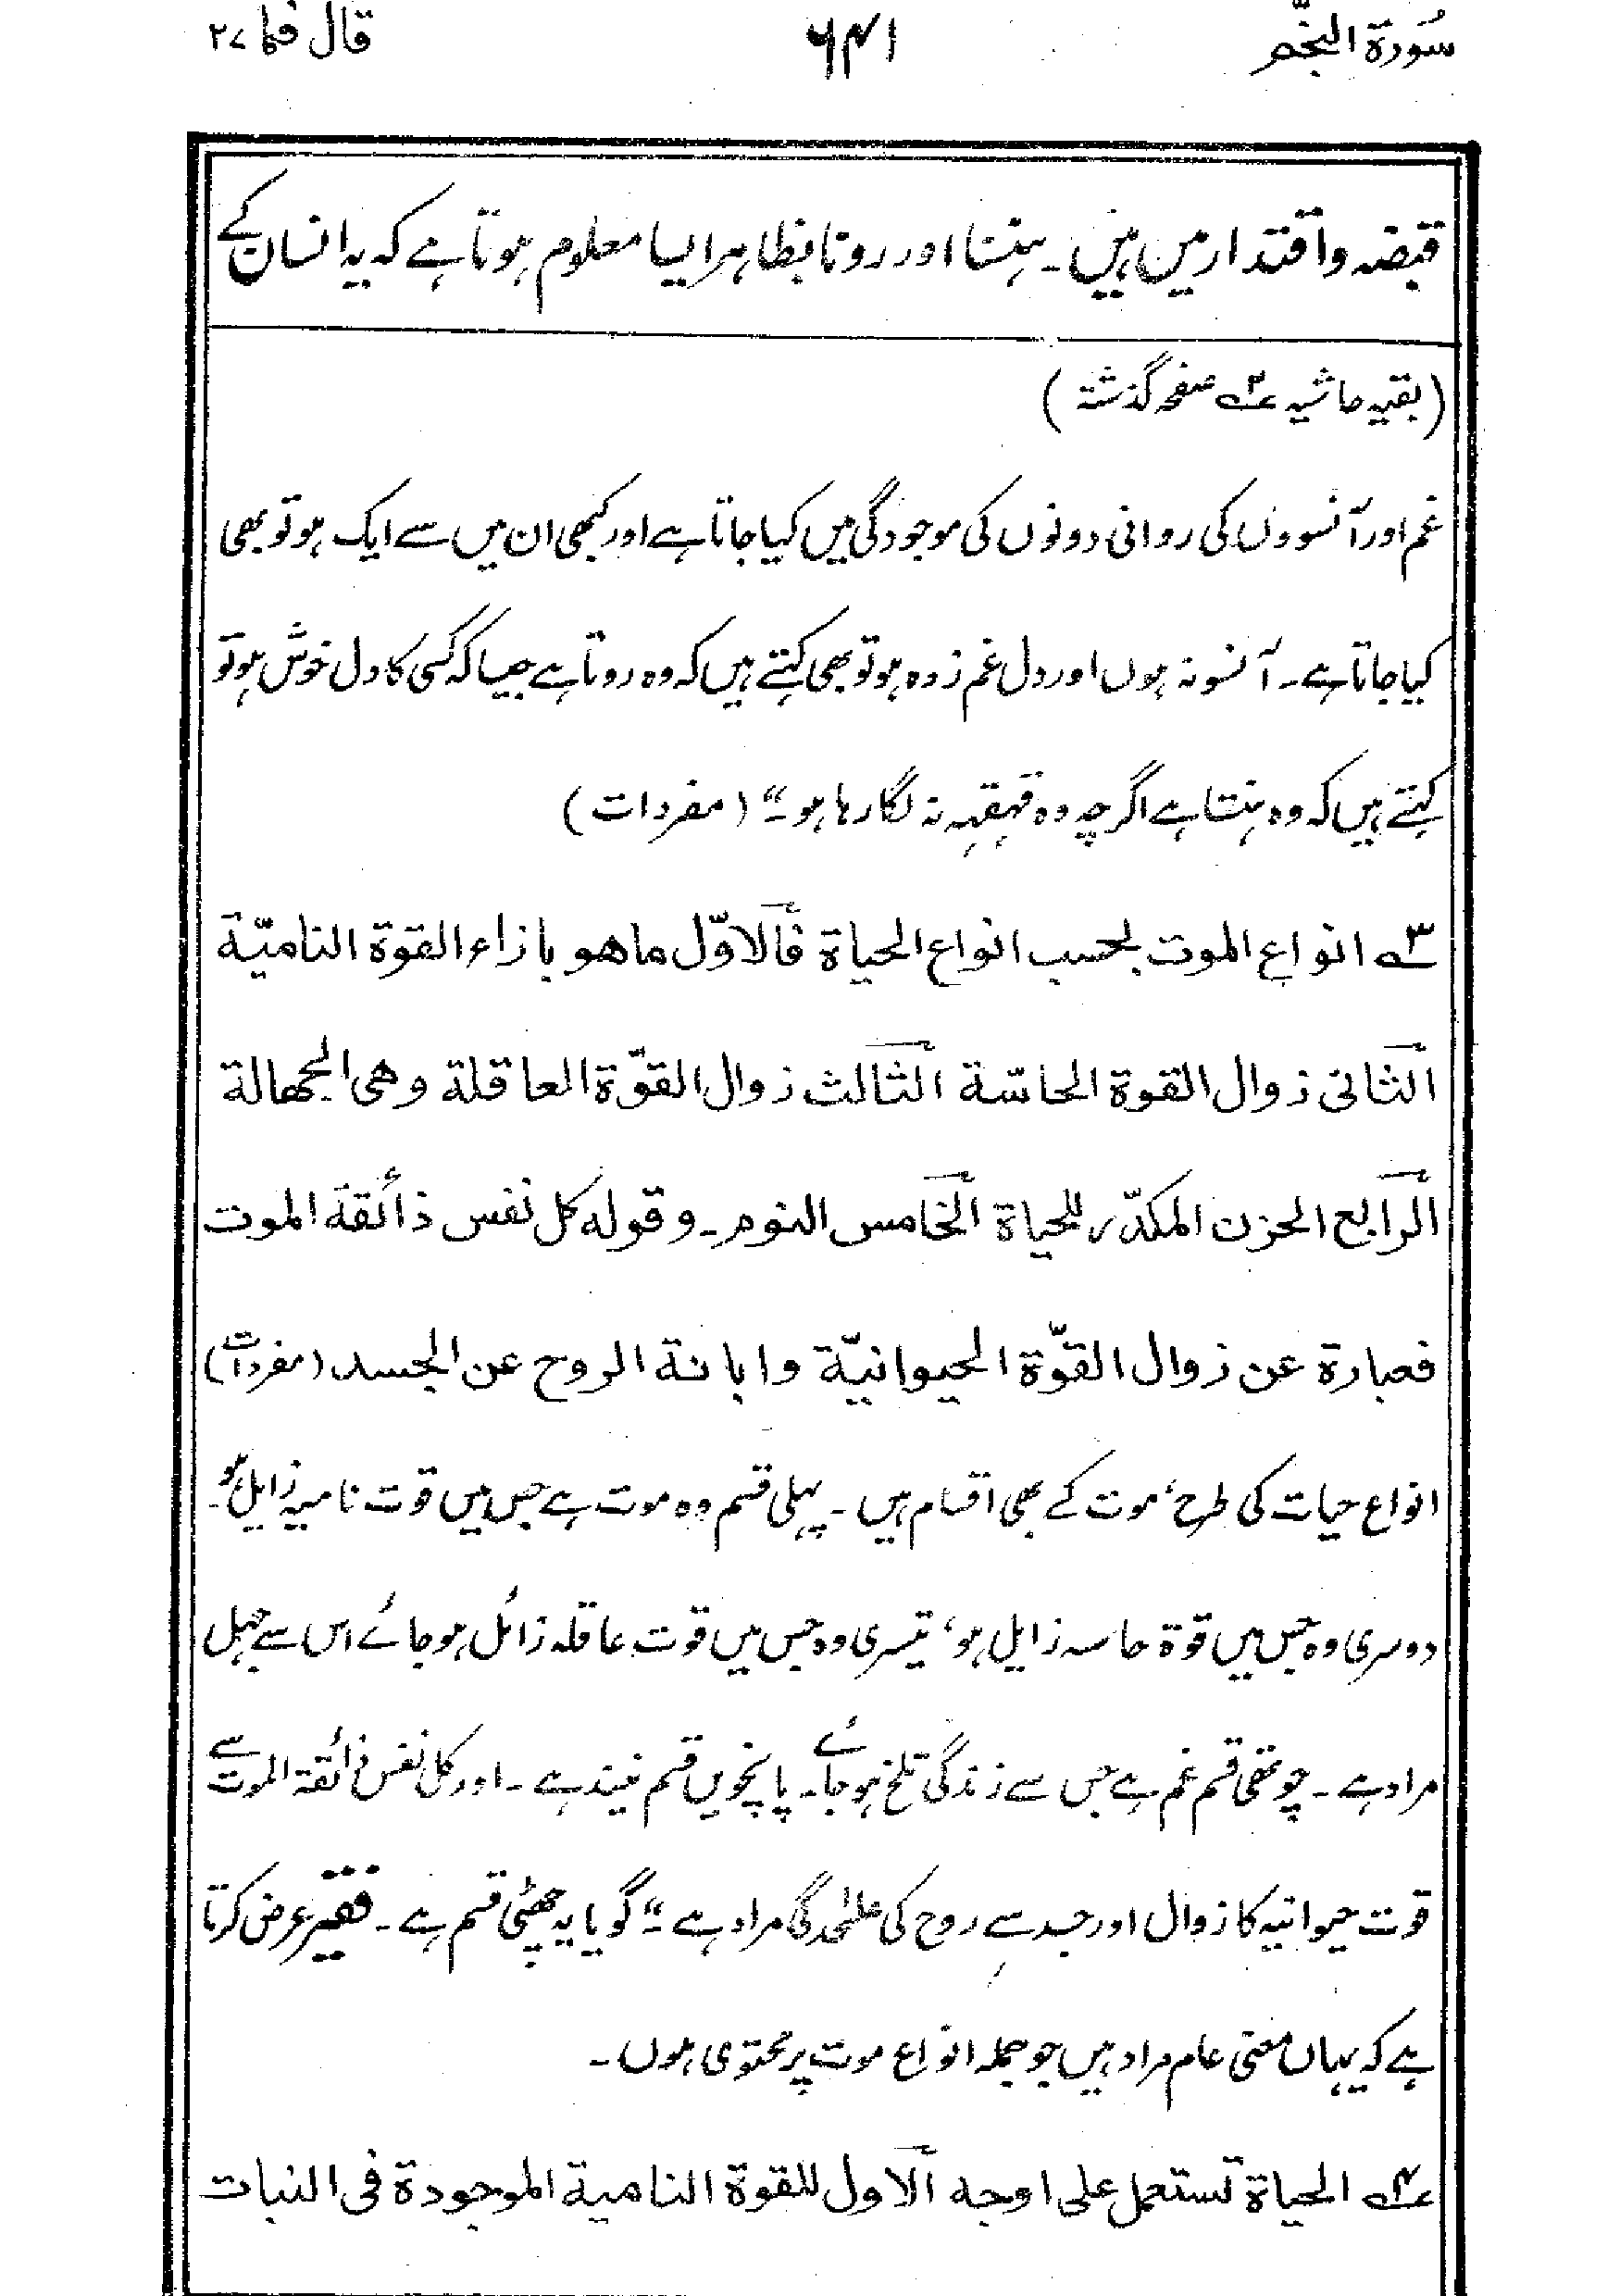 سُورة النجم
۶۴۱
قال فما ۲۷
قبضہ واقتدار میں ہیں۔ ہنسنا اور رونا بظاہر ایسا معلوم ہوتا ہے کہ یہ انسان کے
(بقیہ حاشیہ ۲ صفحہ گذشتہ)
غم اور آنسووں کی روانی دونوں کی موجودگی میں کیا جاتا ہے اور کبھی ان میں سے ایک ہو تو بھی
کیا جاتا ہے۔ آنسو نہ ہوں اور دل غم زدہ ہو تو بھی کہتے ہیں کہ وہ روتا ہے جیسا کہ کسی کا دل خوش ہو تو
کہتے ہیں کہ وہ ہنستا ہے اگرچہ وہ قہقہہ نہ لگا رہا ہو۔“ (مفردات)
۳ انواع الموت بحسب انواع الحیاة فالاوّل ماھو بازاء القوة النامیّة
الثانی زوال القوة الحاسّة الثالث زوال القوّة العاقلة وھی الجھالة
الرابع الحزن المکدّر للحیاة الخامس النوم۔ وقوله کل نفس ذائقة الموت
فعبارة عن زوال القوّة الحیوانیّة وابانة الروح عن الجسد (مفردات)
انواع حیات کی طرح، موت کے بھی اقسام ہیں۔ پہلی قسم وہ موت ہے جس میں قوت نامیہ زایل ہو۔
دوسری وہ جس میں قوة حاسہ زایل ہو، تیسری وہ جس میں قوت عاقلہ زائل ہو جائے اس سے جہل
مراد ہے۔ چوتھی قسم غم ہے جس سے زندگی تلخ ہو جائے۔ پانچویں قسم نیند ہے۔ اور کل نفس ذائقة الموت سے
قوت حیوانیہ کا زوال اور جسد سے روح کی علٰحدگی مراد ہے۔“ گویا یہ چھٹی قسم ہے۔ فقیر عرض کرتا
ہے کہ یہاں معنی عام مراد ہیں جو جملہ انواع موت پر محتوی ہوں۔
۴ الحیاة تستعمل علی اوجه الاول للقوة النامیة الموجودة فی النبات